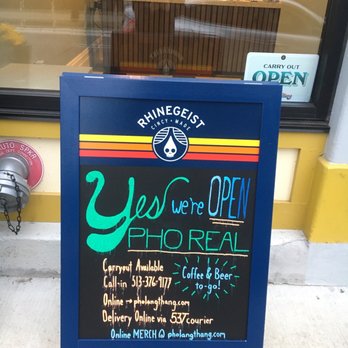 CARRY OUT
OPEN
RHINEGEIST
CINCY MADE
AUTO SPKR
Yes we're OPEN
PHO REAL
Carryout Available
Call-in 513-376-9177
Online → pholangthang.com
Delivery Online via 537 courier
Coffee & Beer
to-go!
Online MERCH @ pholangthang.com